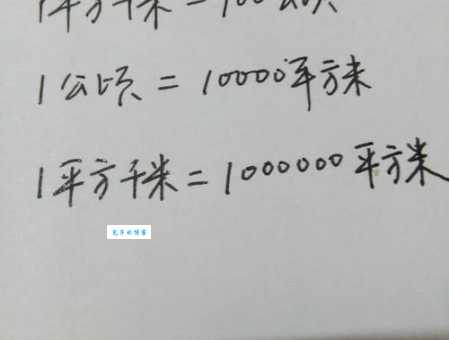 1平方千米=100公顷
1公顷=10000平方米
1平方千米=1000000平方米